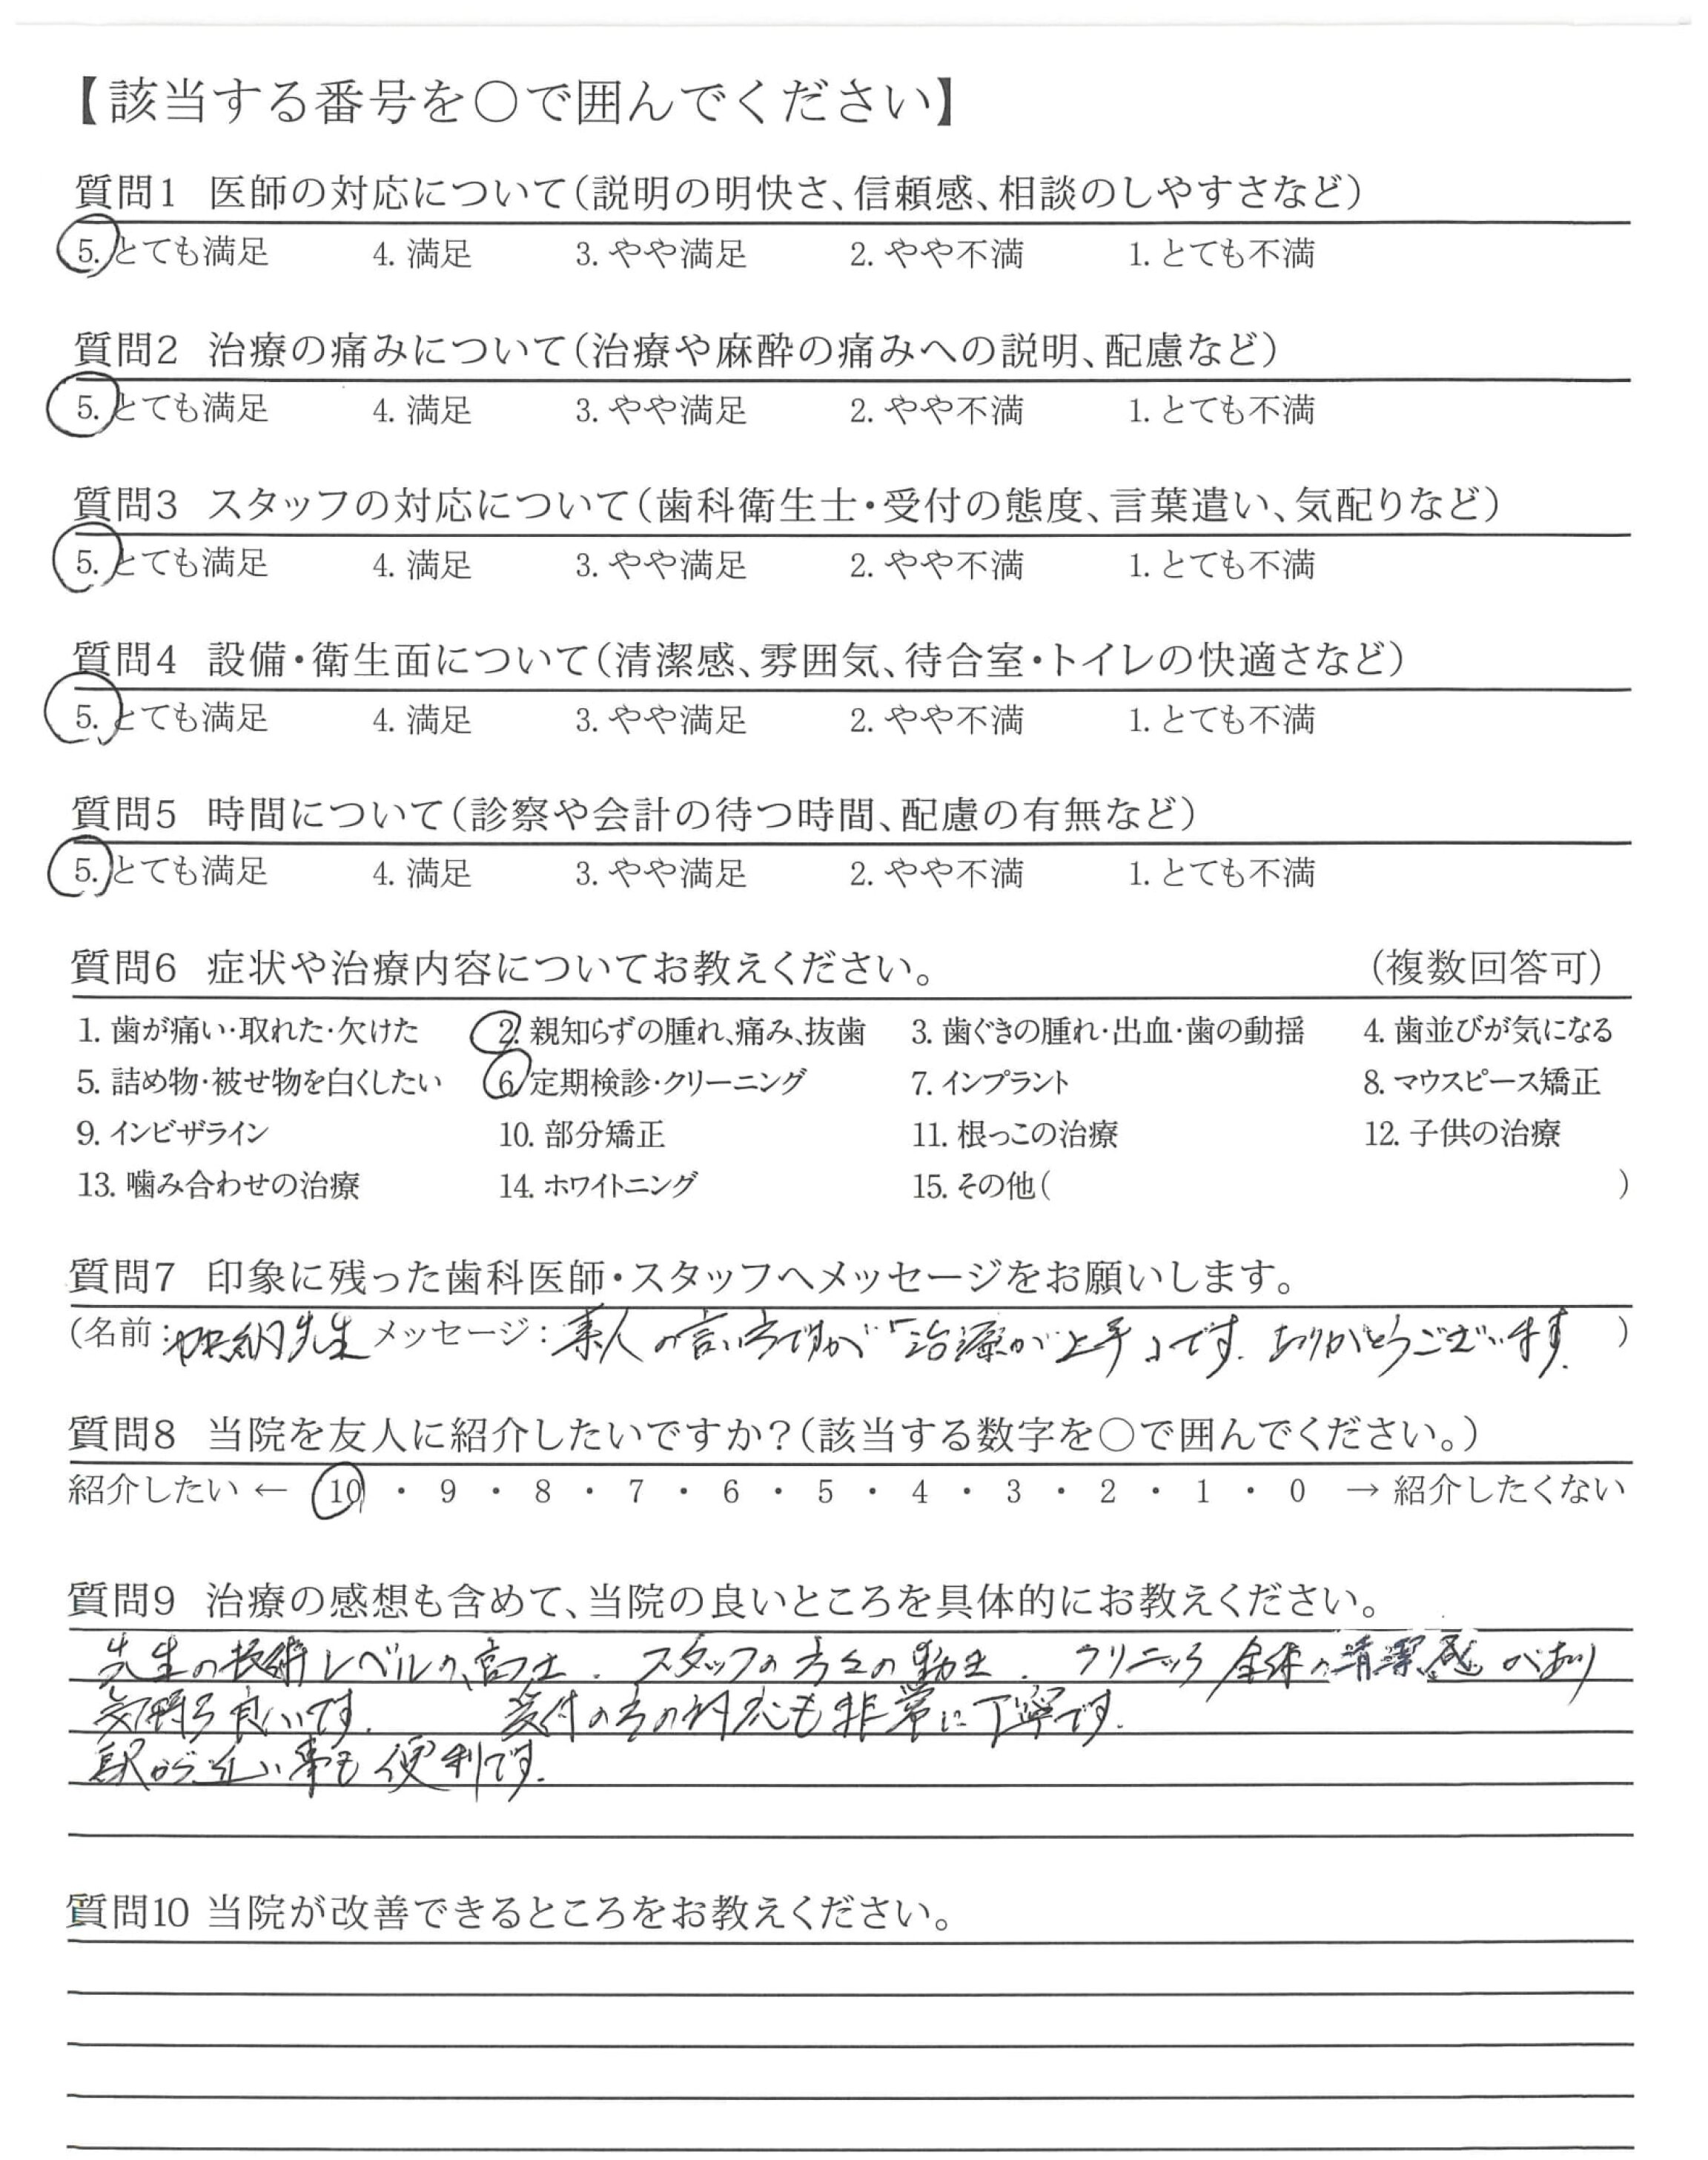 【該当する番号を〇で囲んでください】
質問1 医師の対応について(説明の明快さ、信頼感、相談のしやすさなど)
5. とても満足 4. 満足 3. やや満足 2. やや不満 1. とても不満
質問2 治療の痛みについて(治療や麻酔の痛みへの説明、配慮など)
5. とても満足 4. 満足 3. やや満足 2. やや不満 1. とても不満
質問3 スタッフの対応について(歯科衛生士・受付の態度、言葉遣い、気配りなど)
5. とても満足 4. 満足 3. やや満足 2. やや不満 1. とても不満
質問4 設備・衛生面について(清潔感、雰囲気、待合室・トイレの快適さなど)
5. とても満足 4. 満足 3. やや満足 2. やや不満 1. とても不満
質問5 時間について(診察や会計の待つ時間、配慮の有無など)
5. とても満足 4. 満足 3. やや満足 2. やや不満 1. とても不満
質問6 症状や治療内容についてお教えください。 (複数回答可)
1. 歯が痛い・取れた・欠けた 2. 親知らずの腫れ、痛み、抜歯 3. 歯ぐきの腫れ・出血・歯の動揺 4. 歯並びが気になる
5. 詰め物・被せ物を白くしたい 6. 定期検診・クリーニング 7. インプラント 8. マウスピース矯正
9. インビザライン 10. 部分矯正 11. 根っこの治療 12. 子供の治療
13. 噛み合わせの治療 14. ホワイトニング 15. その他( )
質問7 印象に残った歯科医師・スタッフへメッセージをお願いします。
(名前:加納先生 メッセージ:素人の言い方ですが「治療が上手」です. ありがとうございます. )
質問8 当院を友人に紹介したいですか?(該当する数字を〇で囲んでください。)
紹介したい ← 10 ・ 9 ・ 8 ・ 7 ・ 6 ・ 5 ・ 4 ・ 3 ・ 2 ・ 1 ・ 0 → 紹介したくない
質問9 治療の感想も含めて、当院の良いところを具体的にお教えください。
先生の技術レベルの高さ. スタッフの方々の動き. クリニック全体の清潔感があり
気持ち良いです. 受付の方の対応も非常に丁寧です.
駅から近い事も便利です.
質問10 当院が改善できるところをお教えください。